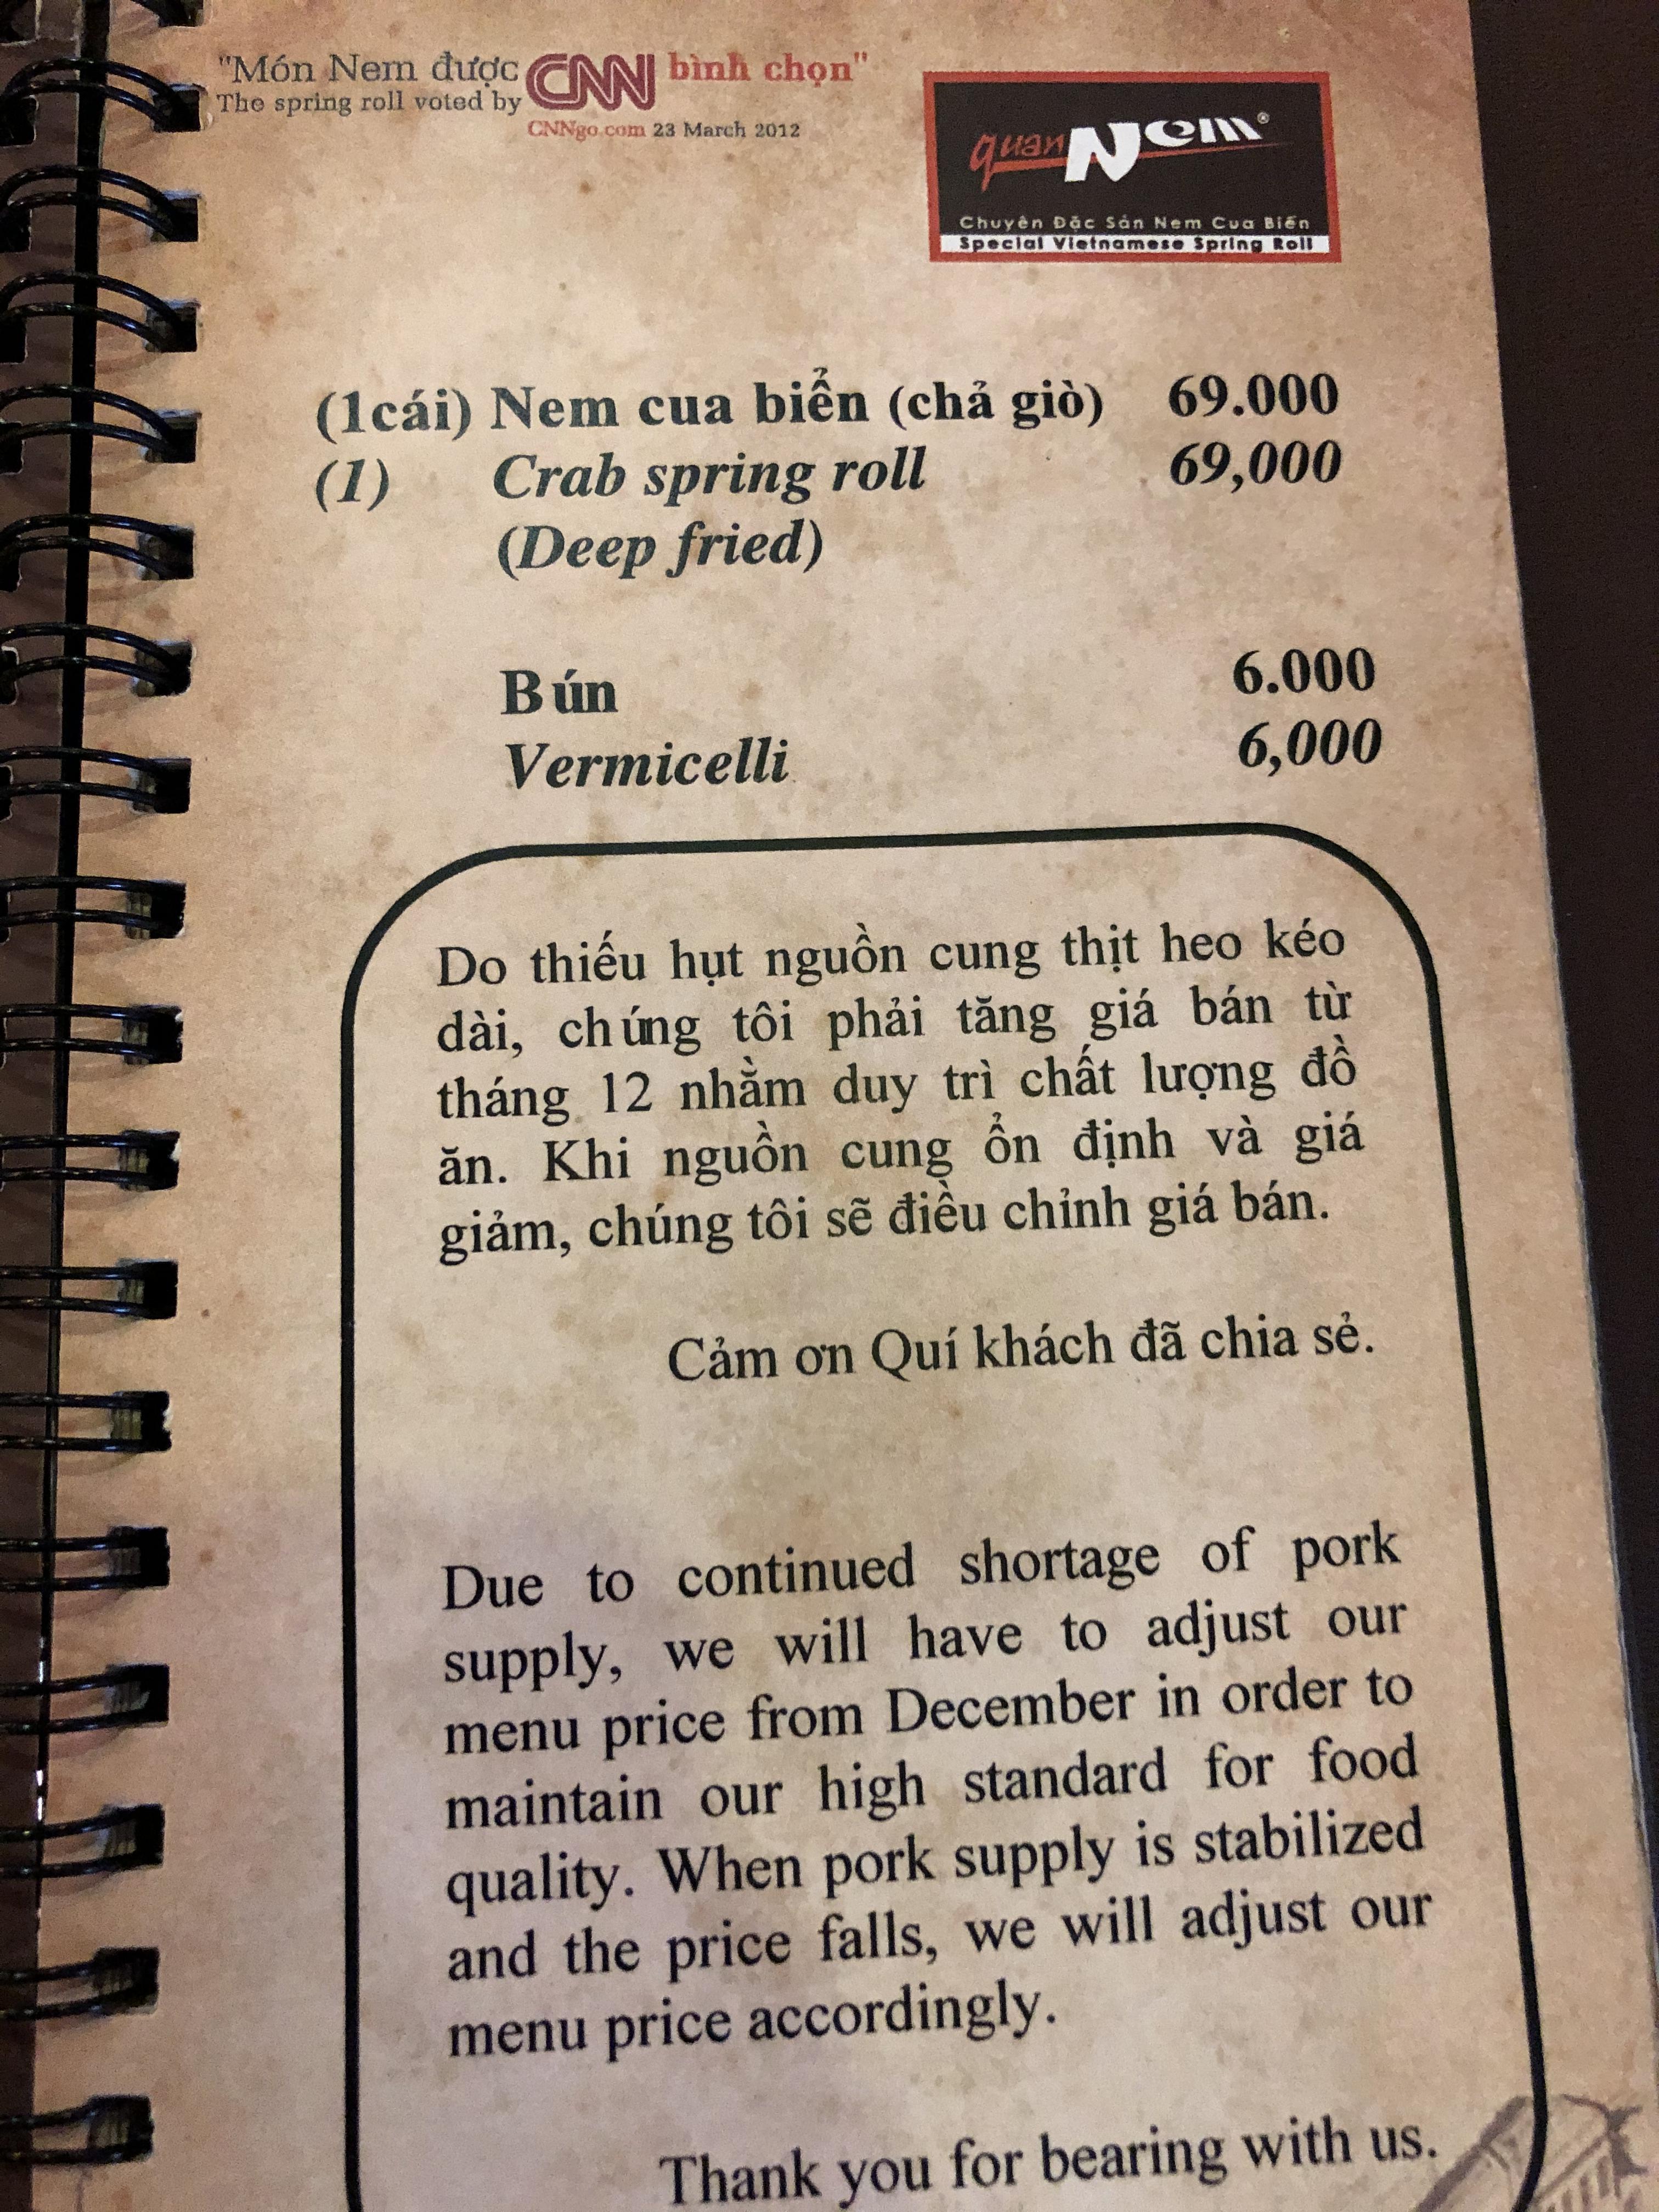 "Món Nem được CNN bình chọn"
The spring roll voted by
CNNgo.com 23 March 2012
quán Nem®
Chuyên Đặc Sản Nem Cua Biển
Special Vietnamese Spring Roll
(1cái) Nem cua biển (chả giò) 69.000
(1) Crab spring roll 69,000
(Deep fried)
Bún 6.000
Vermicelli 6,000
Do thiếu hụt nguồn cung thịt heo kéo
dài, chúng tôi phải tăng giá bán từ
tháng 12 nhằm duy trì chất lượng đồ
ăn. Khi nguồn cung ổn định và giá
giảm, chúng tôi sẽ điều chỉnh giá bán.
Cảm ơn Quí khách đã chia sẻ.
Due to continued shortage of pork
supply, we will have to adjust our
menu price from December in order to
maintain our high standard for food
quality. When pork supply is stabilized
and the price falls, we will adjust our
menu price accordingly.
Thank you for bearing with us.